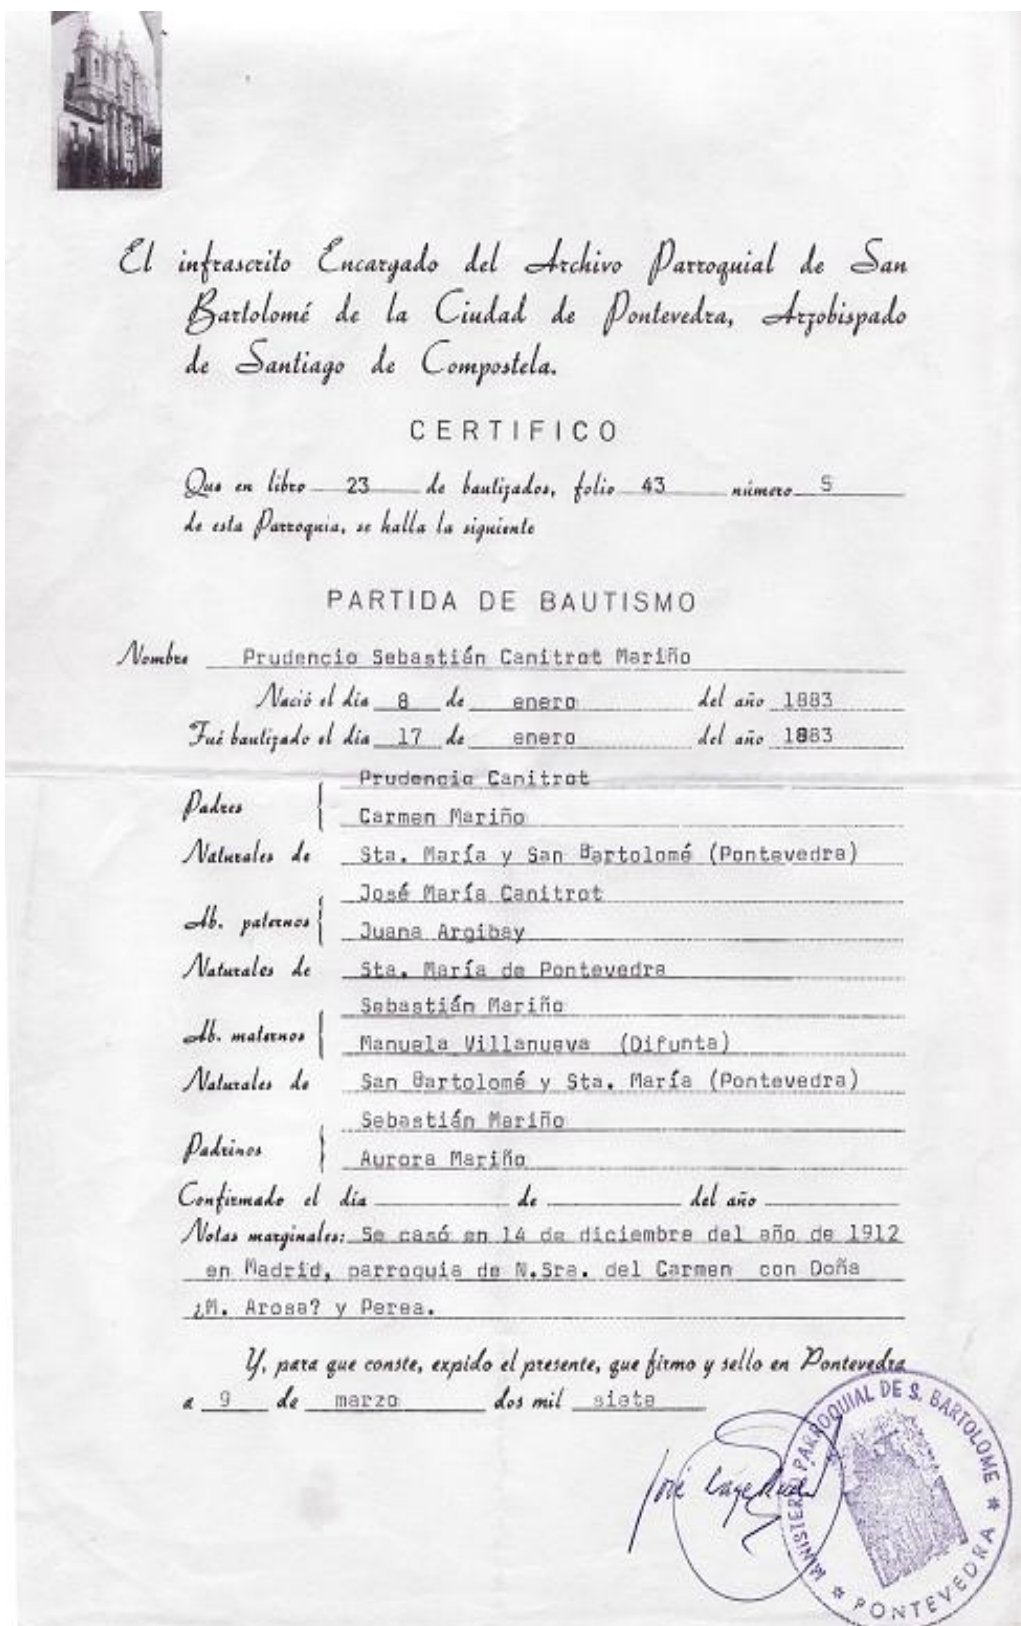 El infrascrito Encargado del Archivo Parroquial de San
Bartolomé de la Ciudad de Pontevedra, Arzobispado
de Santiago de Compostela.
CERTIFICO
Que en libro 23 de bautizados, folio 43 número 5
de esta Parroquia, se halla la siguiente
PARTIDA DE BAUTISMO
Nombre Prudencio Sebastián Canitrot Mariño
Nació el día 8 de enero del año 1883
Fué bautizado el día 17 de enero del año 1883
Prudencio Canitrot
Padres
Carmen Mariño
Naturales de Sta. María y San Bartolomé (Pontevedra)
José María Canitrot
Ab. paternos
Juana Argibay
Naturales de Sta. María de Pontevedra
Sebastián Mariño
Ab. maternos
Manuela Villanueva (Difunta)
Naturales de San Bartolomé y Sta. María (Pontevedra)
Sebastián Mariño
Padrinos
Aurora Mariño
Confirmado el día de del año
Notas marginales: Se casó en 14 de diciembre del año de 1912
en Madrid, parroquia de N.Sra. del Carmen con Doña
¿M. Arosa? y Perea.
Y, para que conste, expido el presente, que firmo y sello en Pontevedra
a 9 de marzo dos mil siete
José
MINISTERIO PARROQUIAL DE S. BARTOLOME * PONTEVEDRA *